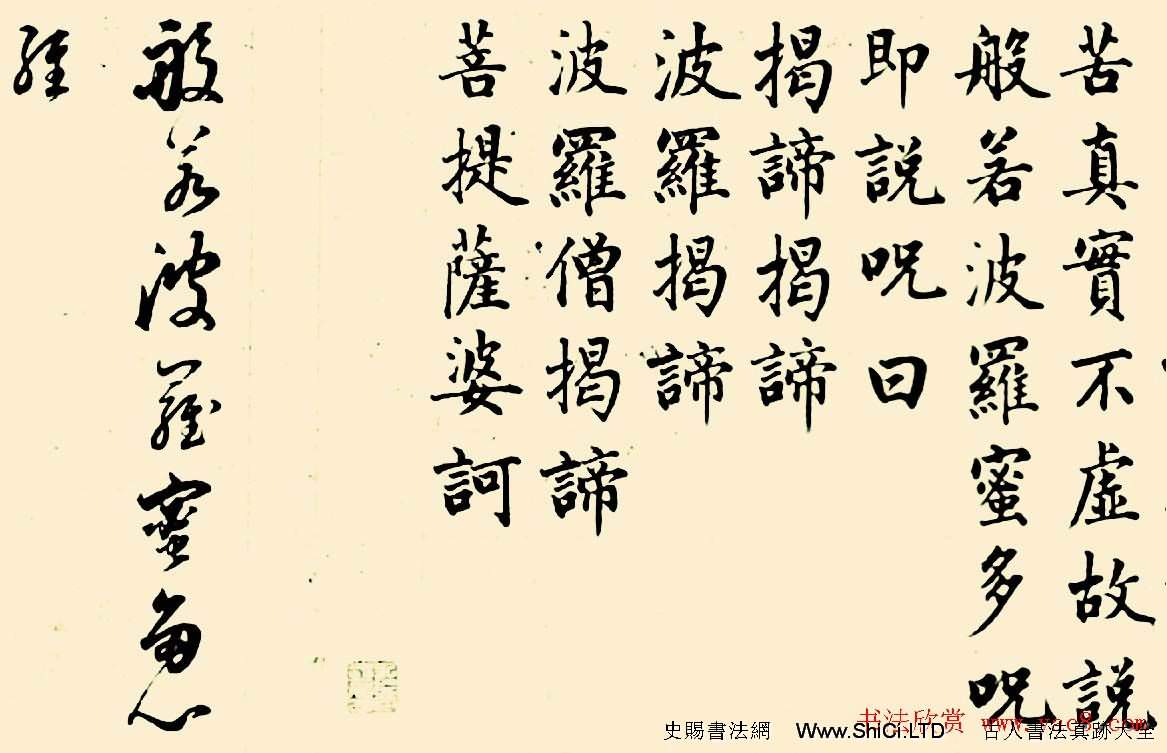 苦真實不虛故說
般若波羅蜜多呪
即說呪曰
揭諦揭諦
波羅揭諦
波羅僧揭諦
菩提薩婆訶
般若波羅蜜多心
經
史賜書法網 Www.ShiCi.LTD 古人書法真跡大全
书法欣赏